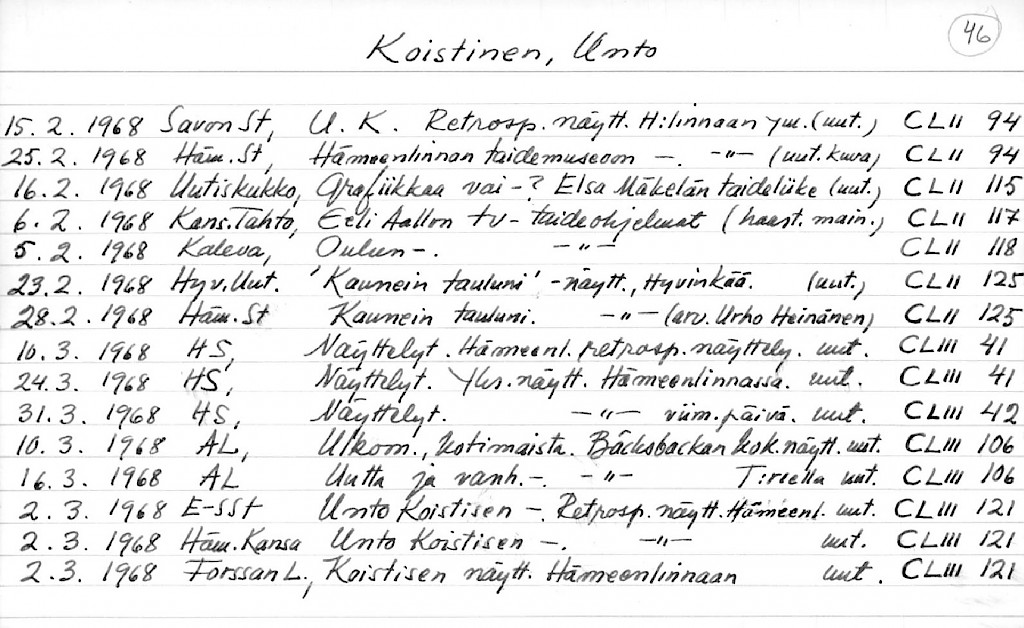 46
Koistinen, Unto
15. 2. 1968 Savon St, U. K. Retrosp. näytt. H:linnaan ym. (uut.) CLII 94
25. 2. 1968 Häm. St, Hämeenlinnan taidemuseoon -. -"- (uut. kuva) CLII 94
16. 2. 1968 Uutiskukko, Grafiikkaa vai -? Elsa Mäkelän taideliike (uut.) CLII 115
6. 2. 1968 Kans. Tahto, Eeli Aallon tv-taideohjelmat (haast. main.) CLII 117
5. 2. 1968 Kaleva, Oulun -. -"- CLII 118
23. 2. 1968 Hyv. Uut. 'Kaunein tauluni' -näytt., Hyvinkää. (uut.) CLII 125
28. 2. 1968 Häm. St Kaunein tauluni. -"- (arv. Urho Heinänen) CLII 125
10. 3. 1968 HS, Näyttelyt. Hämeenl. retrosp. näyttely. uut. CLIII 41
24. 3. 1968 HS, Näyttelyt. Yks. näytt. Hämeenlinnassa. uut. CLIII 41
31. 3. 1968 HS, Näyttelyt. -"- viim. päivä. uut. CLIII 42
10. 3. 1968 AL, Ulkom., kotimaista. Bäcksbackan kok. näytt. uut. CLIII 106
16. 3. 1968 AL Uutta ja vanh. -. -"- uut. CLIII 106
2. 3. 1968 E-SSt Unto Koistisen -. Retrosp. näytt. Hämeenl. uut. CLIII 121
2. 3. 1968 Häm. Kansa Unto Koistisen -. -"- uut. CLIII 121
2. 3. 1968 Forssan L., Koistisen näytt. Hämeenlinnaan uut. CLIII 121